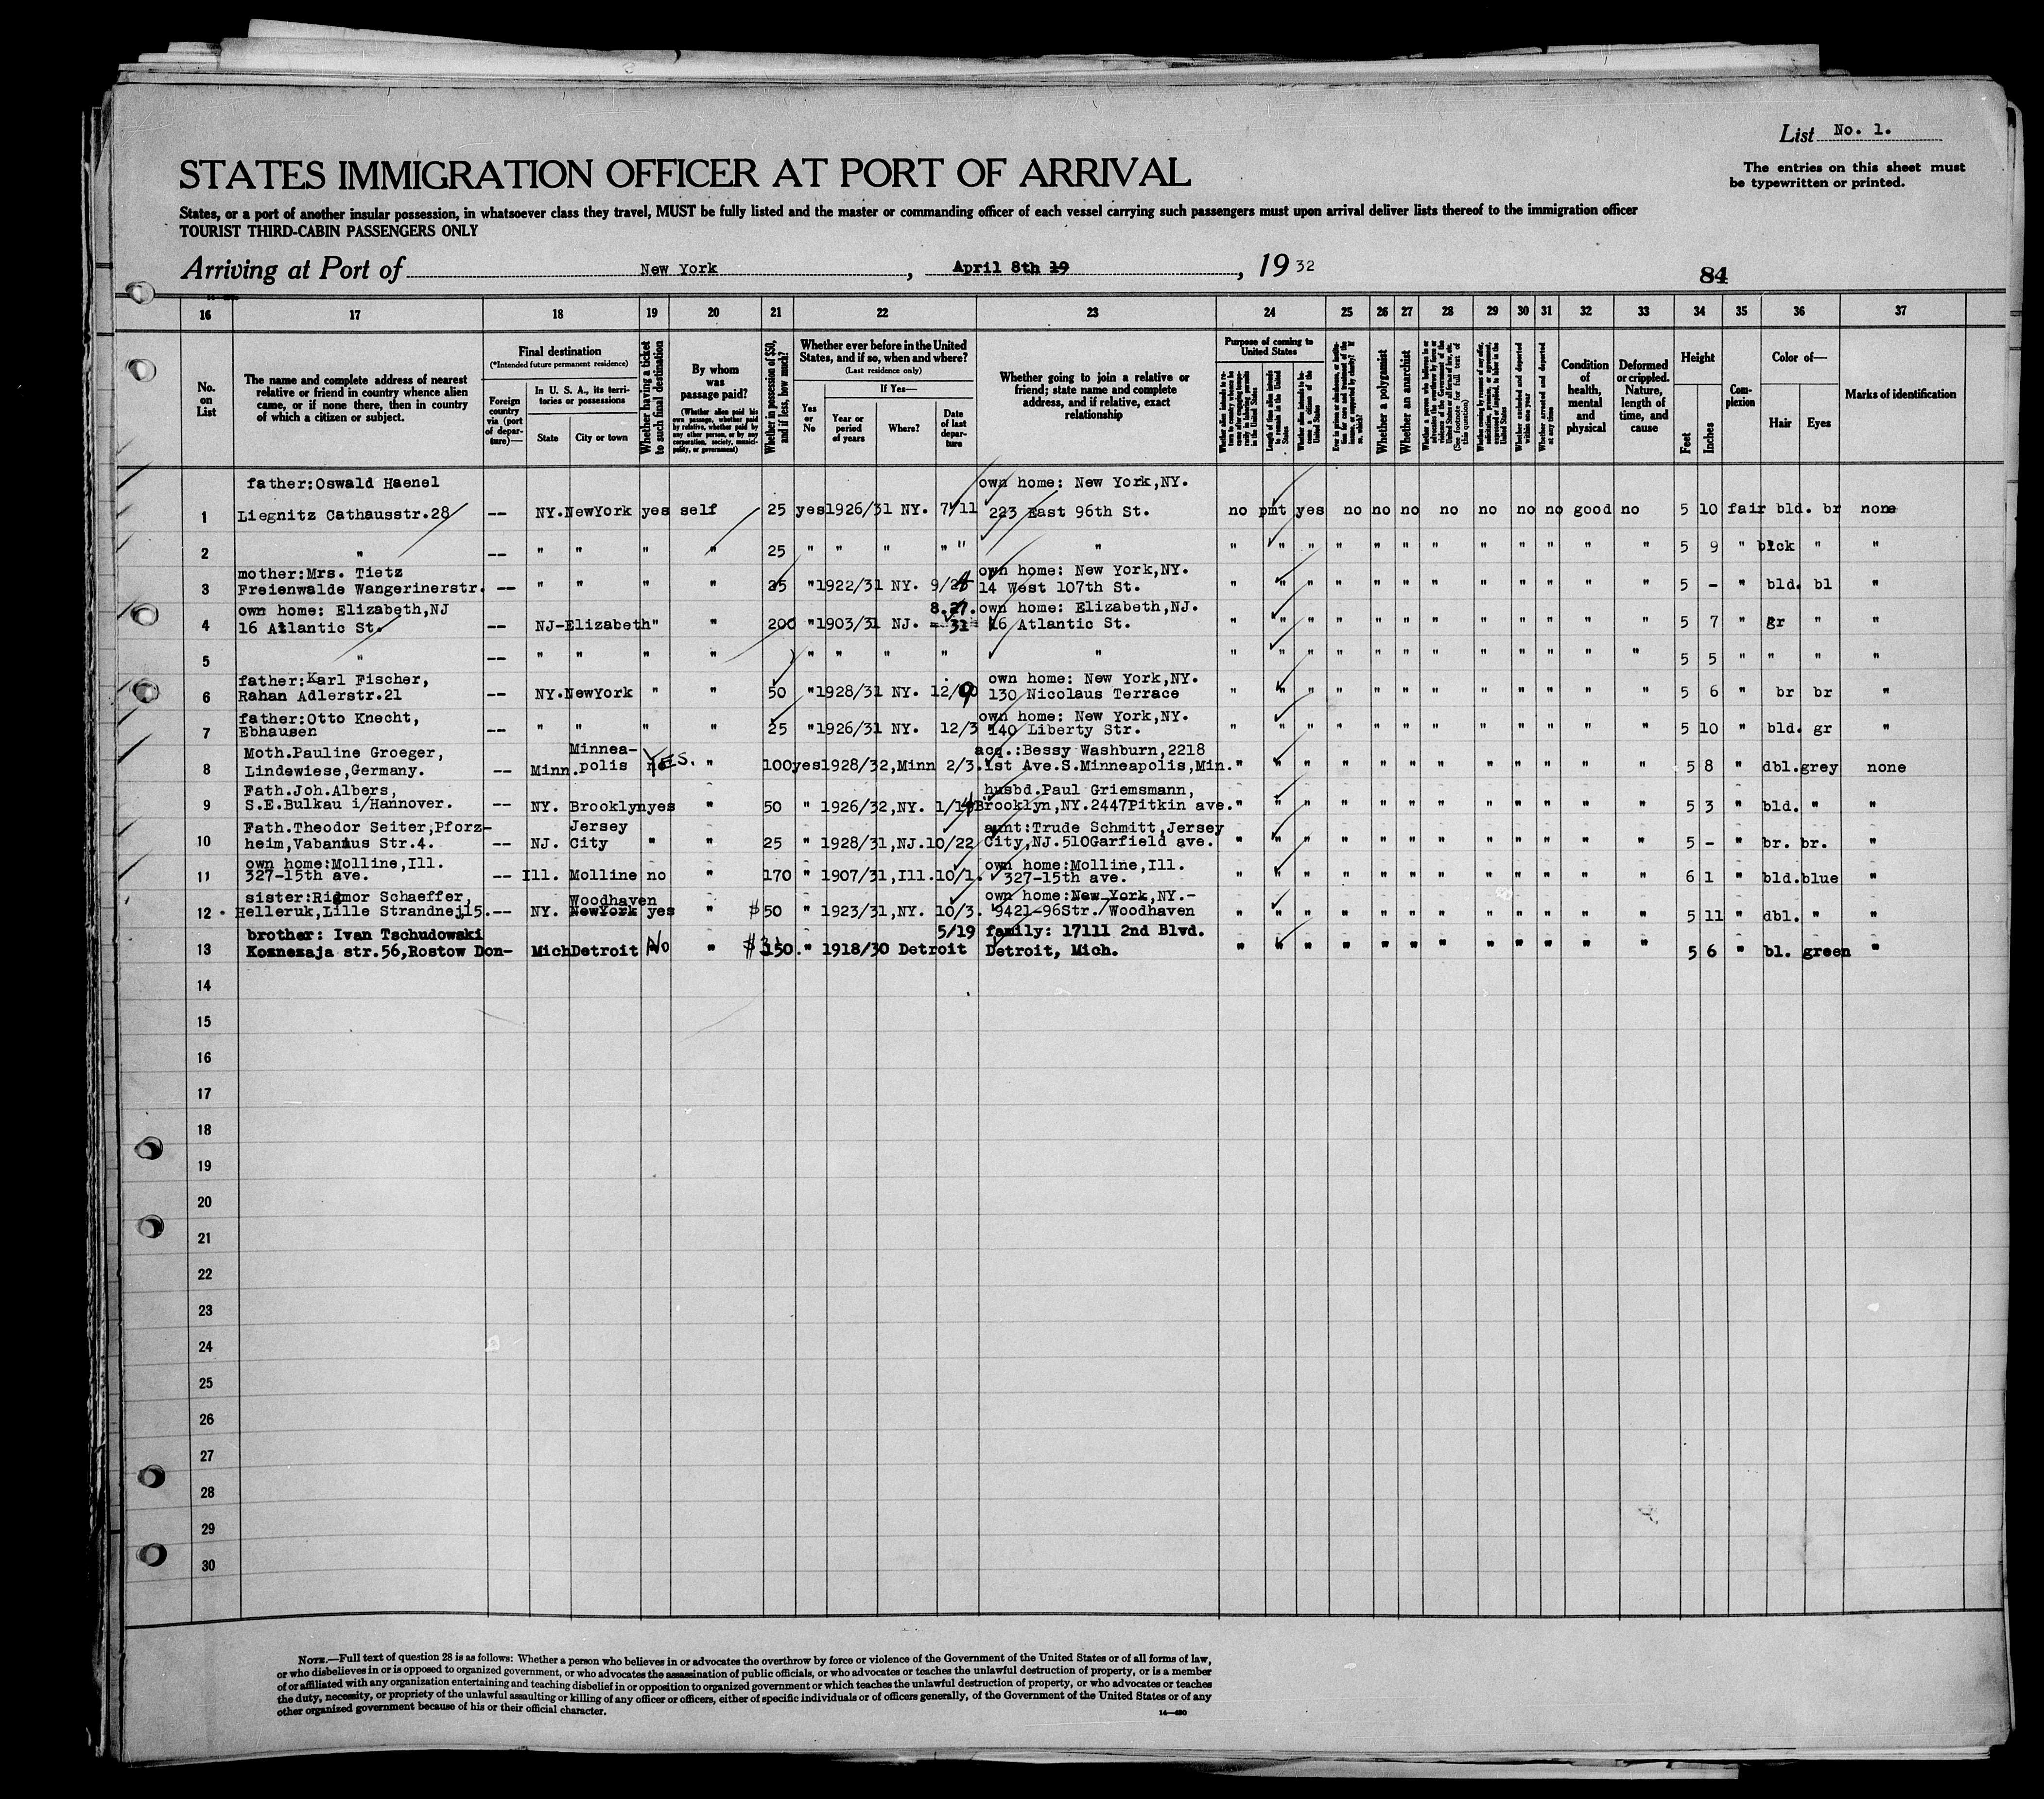 List No. 1.
STATES IMMIGRATION OFFICER AT PORT OF ARRIVAL
The entries on this sheet must
be typewritten or printed.
States, or a port of another insular possession, in whatsoever class they travel, MUST be fully listed and the master or commanding officer of each vessel carrying such passengers must upon arrival deliver lists thereof to the immigration officer
TOURIST THIRD-CABIN PASSENGERS ONLY
Arriving at Port of New York, April 8th 19, 19 32
84
16 17 18 19 20 21 22 23 24 25 26 27 28 29 30 31 32 33 34 35 36 37
No. on List
The name and complete address of nearest
relative or friend in country whence alien
came, or if none there, then in country
of which a citizen or subject.
Final destination
(*Intended future permanent residence)
Foreign country via (port of departure)—
In U. S. A., its territories or possessions
State
City or town
Whether having a ticket to such final destination
By whom was passage paid?
(Whether alien paid his own passage, whether paid by relative, whether paid by any other person, or by any corporation, society, municipality, or government)
Whether in possession of $50, and if less, how much?
Whether ever before in the United
States, and if so, when and where?
(Last residence only)
Yes or No
If Yes—
Year or period of years
Where?
Date of last departure
Whether going to join a relative or
friend; state name and complete
address, and if relative, exact
relationship
Purpose of coming to United States
Whether a polygamist
Whether an anarchist
Condition of health, mental and physical
Deformed or crippled. Nature, length of time, and cause
Height
Feet
Inches
Complexion
Color of—
Hair
Eyes
Marks of identification
father:Oswald Haenel own home: New York,NY.
1 Liegnitz Cathausstr.28 -- NY. NewYork yes self 25 yes 1926/31 NY. 7/11 223 East 96th St. no pmt yes no no no no no no no good no 5 10 fair bld. br none
2 " -- " " " " 25 " " " " " " " " " " " " " " " " " " 5 9 " blck " "
mother:Mrs. Tietz own home: New York,NY.
3 Freienwalde Wangerinerstr. -- " " " " 25 " 1922/31 NY. 9/28 14 West 107th St. " " " " " " " " " " " " 5 - " bld. bl "
own home: Elizabeth,NJ 8.27. own home: Elizabeth,NJ.
4 16 Atlantic St. -- NJ-Elizabeth " " 200 " 1903/31 NJ. 31 16 Atlantic St. " " " " " " " " " " " " 5 7 " gr " "
5 " -- " " " " " " " " " " " " " " " " " " " " " 5 5 " " " "
father:Karl Fischer, own home: New York,NY.
6 Rahan Adlerstr.21 -- NY. NewYork " " 50 " 1928/31 NY. 12/9 130 Nicolaus Terrace " " " " " " " " " " " " 5 6 " br br "
father:Otto Knecht, own home: New York,NY.
7 Ebhausen -- " " " " 25 " 1926/31 NY. 12/3 140 Liberty Str. " " " " " " " " " " " " 5 10 " bld. gr "
Moth.Pauline Groeger, Minnea- acq.:Bessy Washburn,2218
8 Lindewiese,Germany. -- Minn. polis no YES. " 100 yes 1928/32,Minn 2/3. 1st Ave.S.Minneapolis,Min. " " " " " " " " " " " " 5 8 " dbl. grey none
Fath.Joh.Albers, husbd.Paul Griemsmann,
9 S.E.Bulkau i/Hannover. -- NY. Brooklyn yes " 50 " 1926/32,NY. 1/14 Brooklyn,NY.2447Pitkin ave. " " " " " " " " " " " " 5 3 " bld. " "
Fath.Theodor Seiter,Pforz- Jersey aunt:Trude Schmitt,Jersey
10 heim,Vabanius Str.4. -- NJ. City " " 25 " 1928/31,NJ. 10/22 City,NJ.510Garfield ave. " " " " " " " " " " " " 5 - " br. br. "
own home:Molline,Ill. own home:Molline,Ill.
11 327-15th ave. -- Ill. Molline no " 170 " 1907/31,Ill. 10/1. 327-15th ave. " " " " " " " " " " " " 6 1 " bld. blue "
sister:Rigmor Schaeffer, Woodhaven own home:New York,NY.-
12 Helleruk,Lille Strandnej15. -- NY. NewYork yes " $50 " 1923/31,NY. 10/3. 9421-96Str./Woodhaven " " " " " " " " " " " " 5 11 " dbl. " "
brother: Ivan Tschudowski 5/19 family: 17111 2nd Blvd.
13 Kosnezaja str.56,Rostow Don- Mich Detroit No " $150. " 1918/30 Detroit Detroit, Mich. " " " " " " " " " " " " 5 6 " bl. green "
14
15
16
17
18
19
20
21
22
23
24
25
26
27
28
29
30
NOTE.—Full text of question 28 is as follows: Whether a person who believes in or advocates the overthrow by force or violence of the Government of the United States or of all forms of law,
or who disbelieves in or is opposed to organized government, or who advocates the assassination of public officials, or who advocates or teaches the unlawful destruction of property, or is a member
of or affiliated with any organization entertaining and teaching disbelief in or opposition to organized government or which teaches the unlawful destruction of property, or who advocates or teaches
the duty, necessity, or propriety of the unlawful assaulting or killing of any officer or officers, either of specific individuals or of officers generally, of the Government of the United States or of any
other organized government because of his or their official character.
14—480